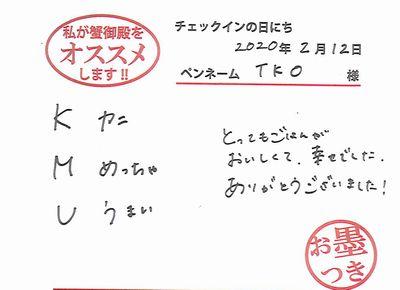 私が蟹御殿を
オススメ
します!!
チェックインの日にち
2020年 2月12日
ペンネーム TKO 様
K カニ
M めっちゃ
U うまい
とってもごはんが
おいしくて、幸せでした.
ありがとうございました!
お墨
つき